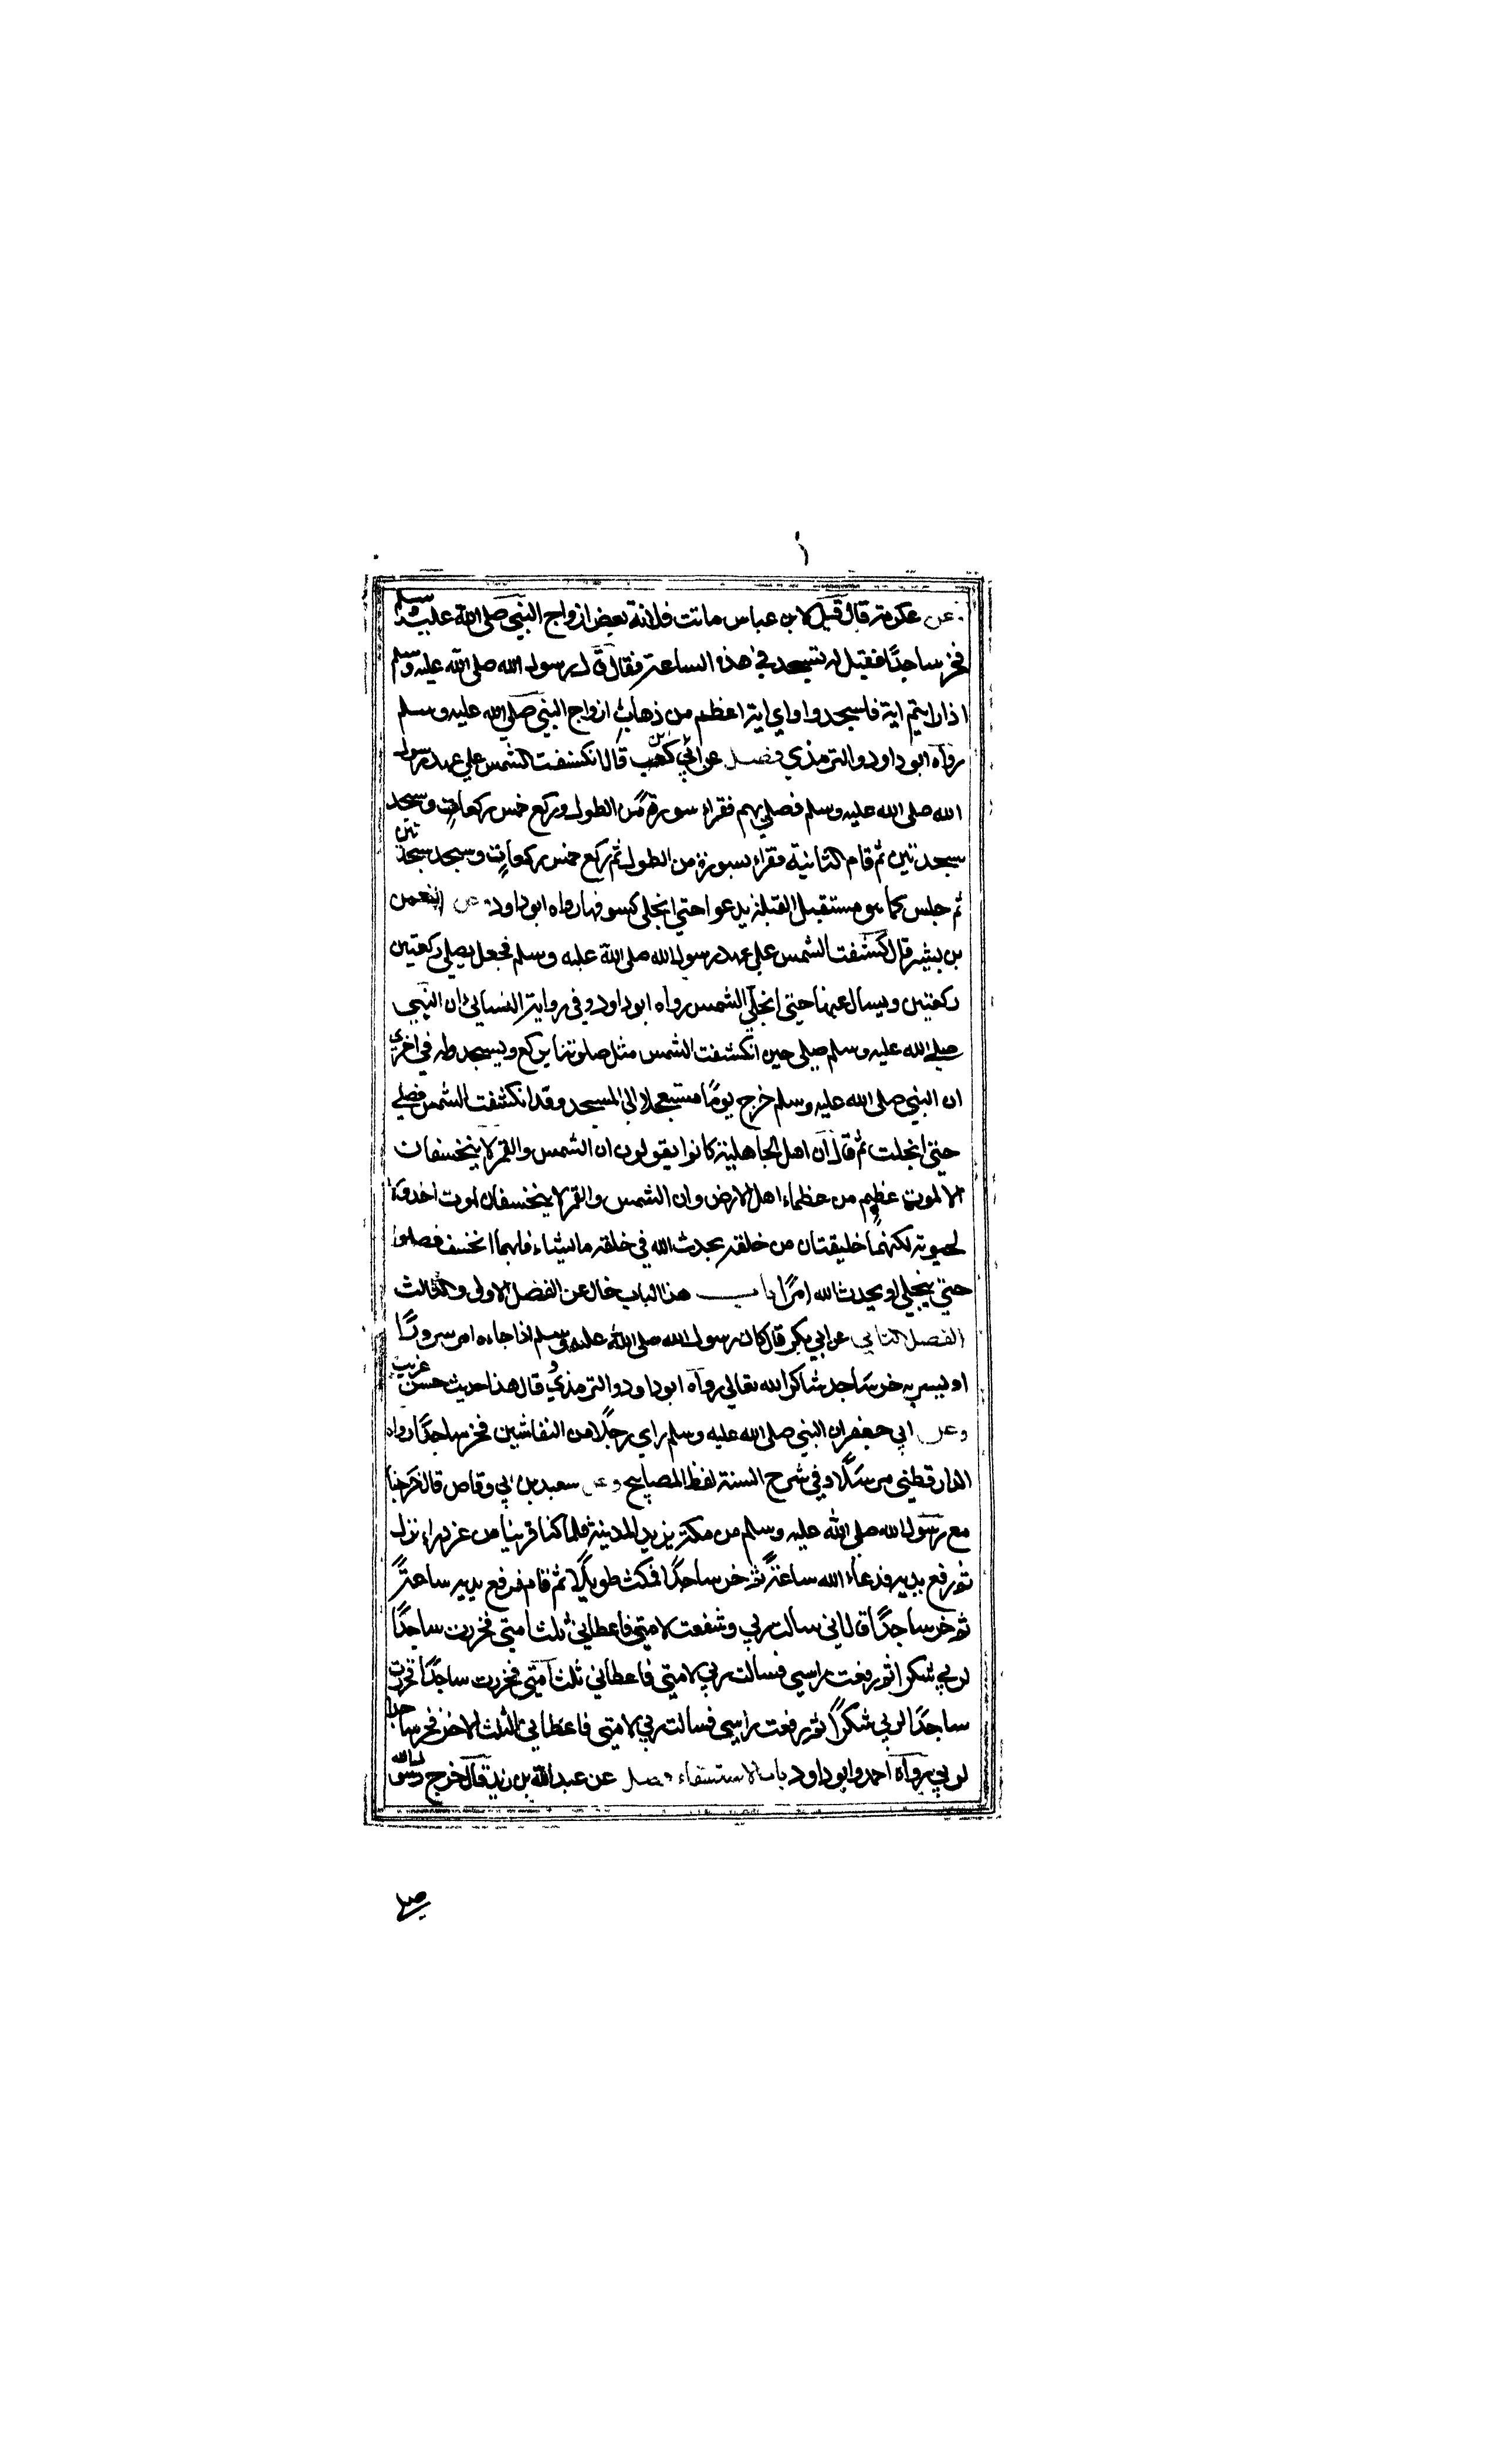 عن عكرمة قال قيل لابن عباس ماتت فلانة بعض ازواج النبي صلى الله عليه وسلم
فخر ساجدًا فقيل له تسجد في هذه الساعة فقال قال رسول الله صلى الله عليه وسلم
اذا رايتم اية فاسجدوا واي اية اعظم من ذهاب ازواج النبي صلى الله عليه وسلم
رواه ابو داود والترمذي فصل عن ابي بن كعب قال انكسفت الشمس علي عهد رسول
الله صلى الله عليه وسلم فصلي بهم فقراء سورة من الطول وركع خمس ركعات وسجد
سجدتين ثم قام الثانية فقراء بسورة من الطول ثم ركع خمس ركعات وسجد سجدتين
ثم جلس كما هو مستقبل القبلة يدعوا حتي انجلي كسوفها رواه ابو داود عن النعمن
بن بشير قال كسفت الشمس علي عهد رسول الله صلى الله عليه وسلم فجعل يصلي ركعتين
ركعتين ويسال عنها حتي انجلي الشمس رواه ابو داود وفي رواية النسائي ان النبي
صلي الله عليه وسلم صلى حين انكسفت الشمس مثل صلوتنا يركع ويسجد وله في اخرى
ان النبي صلى الله عليه وسلم خرج يومًا مستعجلا الى المسجد وقد انكسفت الشمس فصلي
حتي انجلت ثم قال ان اهل الجاهلية كانوا يقولون ان الشمس والقمر لا ينخسفان
الا لموت عظيم من عظماء اهل الارض وان الشمس والقمر لا ينخسفان لموت احد ولا
لحيوته لكنهما خليقتان من خلقه يحدث الله في خلقه ما يشاء فايهما انخسف فصلوا
حتي ينجلي او يحدث الله امرًا باب هذا الباب خال عن الفصل الاولى والثالث
الفصل الثاني عن ابي بكر قال كان رسول الله صلى الله عليه وسلم اذا جاءه امر سرورًا
او يسر به خر ساجد شاكرا لله تعالي رواه ابو داود والترمذي وقال هذا حديث حسن غريب
وعن ابي جعفر ان النبي صلى الله عليه وسلم راي رجلًا من النغاشين فخر ساجدًا رواه
الدارقطني مرسلًا وفي شرح السنة لفظ المصابيح وعن سعيد بن ابي وقاص قال خرجنا
مع رسول الله صلى الله عليه وسلم من مكة يزيد المدينة فلما كنا قريبا من عزوراء نزل
ثم رفع يديه فدعاء الله ساعة ثم خر ساجدًا فمكث طويلًا ثم قام فرفع يديه ساعةً
ثم خر ساجدًا قال اني سالت ربي وشفعت لامتي فاعطاني ثلث امتي فخررت ساجدًا
لربي شكرا ثم رفعت راسي فسالت ربي لامتي فاعطاني ثلث امتي فخررت ساجدًا فخررت
ساجدًا لربي شكرًا ثم رفعت راسي فسالت ربي لامتي فاعطاني الثلث الاخر فخر ساجدا
لربي رواه احمد وابو داود باب الاستسقاء فصل عن عبد الله بن زيد قال خرج رسول الله
صلى